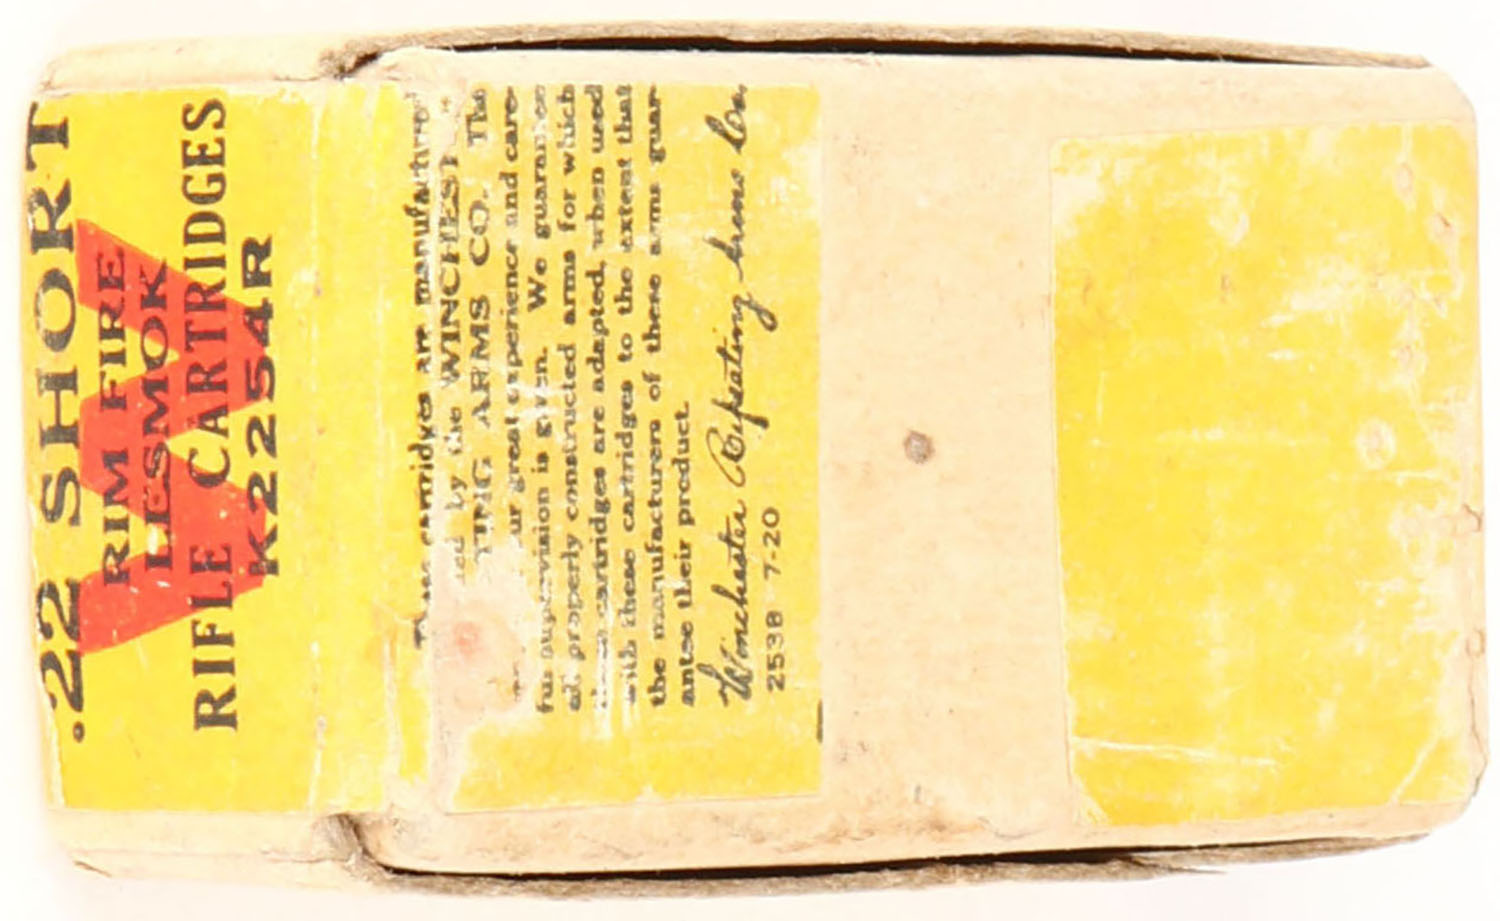 .22 SHORT
RIM FIRE
LESMOK
RIFLE CARTRIDGES
K2254R
W
cartridges are manufactur
ed by the WINCHEST
TING ARMS CO. The
ur great experience and care-
ful supervision is given. We guarantee
all properly constructed arms for which
these cartridges are adapted, when used
with these cartridges to the extent that
the manufacturers of these arms guar-
antee their product.
Winchester Repeating Arms Co.
2538 7-20